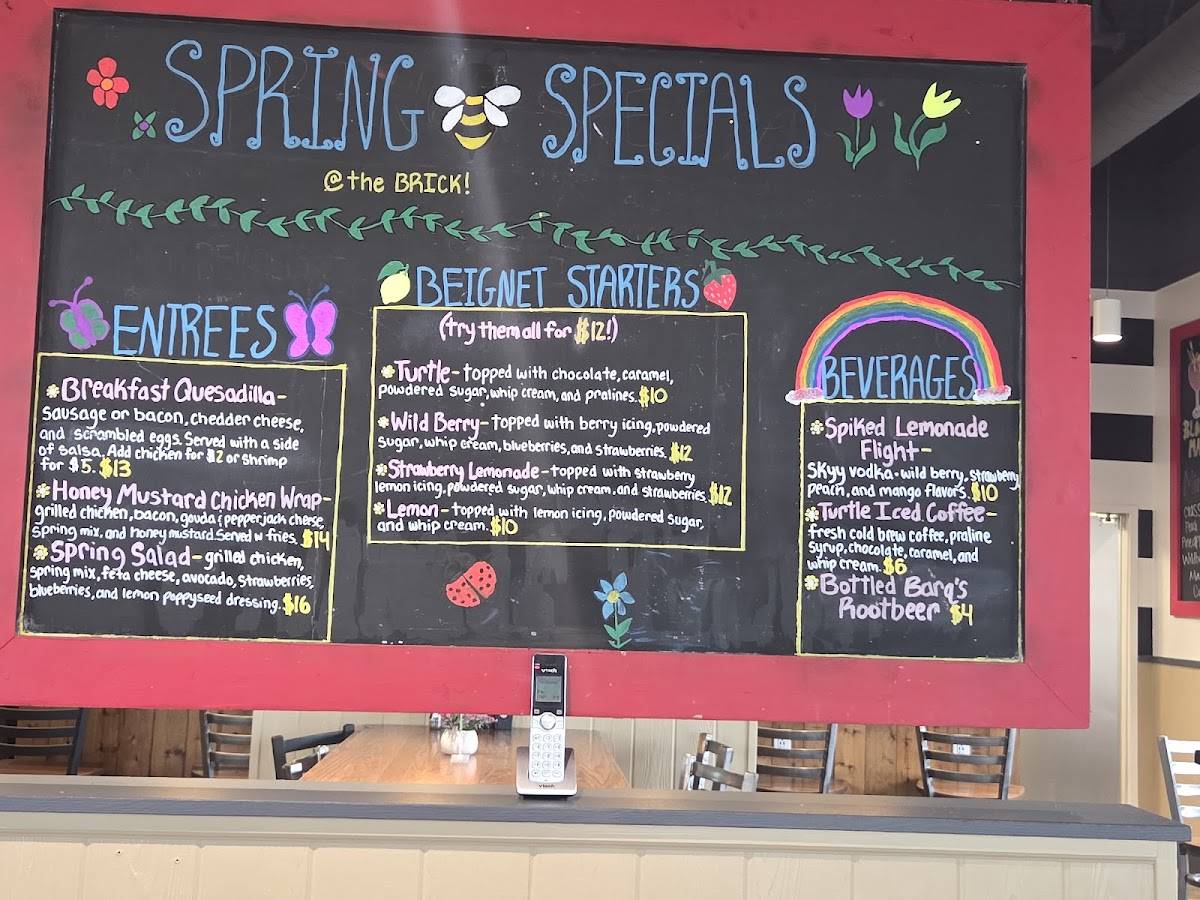 SPRING SPECIALS
@ the BRICK!
ENTREES
Breakfast Quesadilla-
sausage or bacon, chedder cheese,
and scrambled eggs. Served with a side
of salsa. Add chicken for $2 or shrimp
for $5. $13
Honey Mustard Chicken Wrap-
grilled chicken, bacon, gouda & pepperjack cheese,
spring mix, and honey mustard. Served w fries. $14
Spring Salad- grilled chicken,
spring mix, feta cheese, avocado, strawberries,
blueberries, and lemon poppyseed dressing. $16
BEIGNET STARTERS
(try them all for $12!)
Turtle- topped with chocolate, caramel,
powdered sugar, whip cream, and pralines. $10
Wild Berry- topped with berry icing, powdered
sugar, whip cream, blueberries, and strawberries. $12
Strawberry Lemonade- topped with strawberry
lemon icing, powdered sugar, whip cream, and strawberries. $12
Lemon- topped with lemon icing, powdered sugar,
and whip cream. $10
BEVERAGES
Spiked Lemonade
Flight-
Skyy vodka- wild berry, strawberry,
peach, and mango flavors. $10
Turtle Iced Coffee-
fresh cold brew coffee, praline
syrup, chocolate, caramel, and
whip cream. $6
Bottled Barq's
Rootbeer $4
vtech
vtech